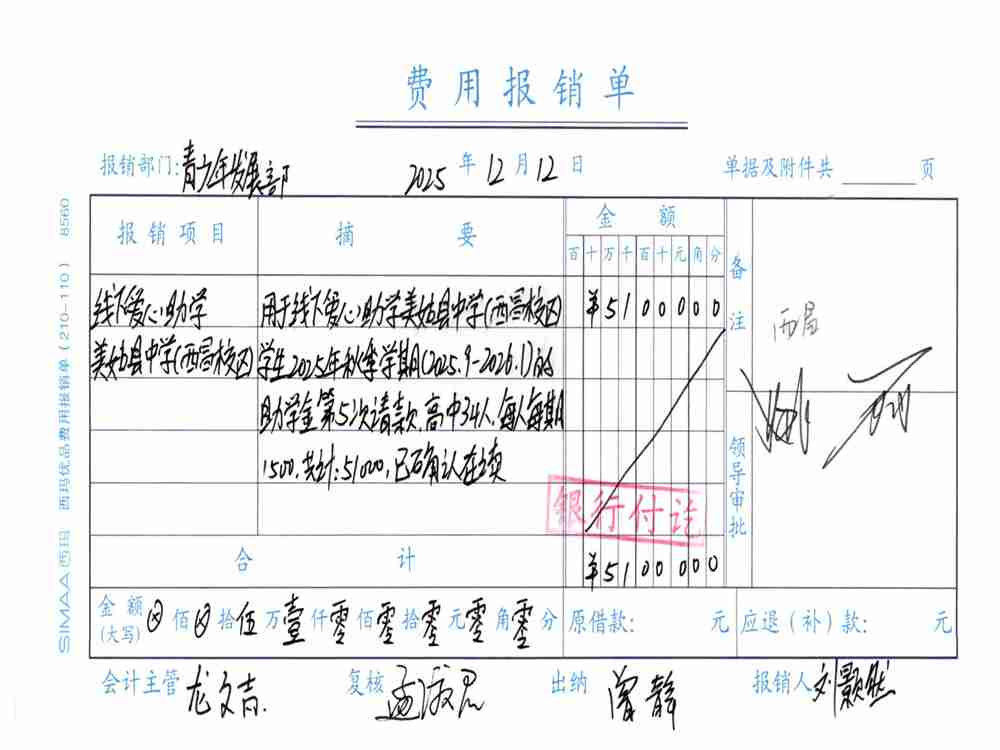 费用报销单
报销部门:青少年发展部 2025年12月12日 单据及附件共 页
报销项目 摘要 金额 备注
百十万千百十元角分
线下爱心助学 用于线下爱心助学美姑县中学(西昌校区) ¥5100000
美姑县中学(西昌校区) 学生2025年秋季学期(2025.9-2026.1)的
助学金第5次请款,高中34人,每人每期
1500,共计:51000,已确认在读
西昌
领导审批
银行付讫
合计 ¥5100000
金额(大写) ⊗佰⊗拾伍万壹仟零佰零拾零元零角零分 原借款: 元 应退(补)款: 元
会计主管 龙文吉 复核 出纳 曾静 报销人 刘颢然
SIMAA西玛 西玛优品费用报销单(210-110) 8560